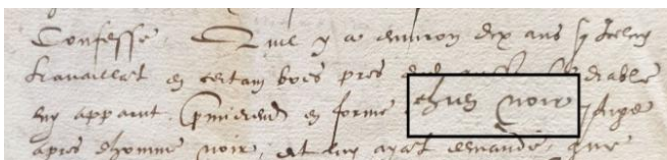 Confesse. Qu'il y a environ dix ans q
travaillat en certain bois pres diable
luy apparut premierem en forme chien noir
apres d'homme noir, et luy ayat demandé, que